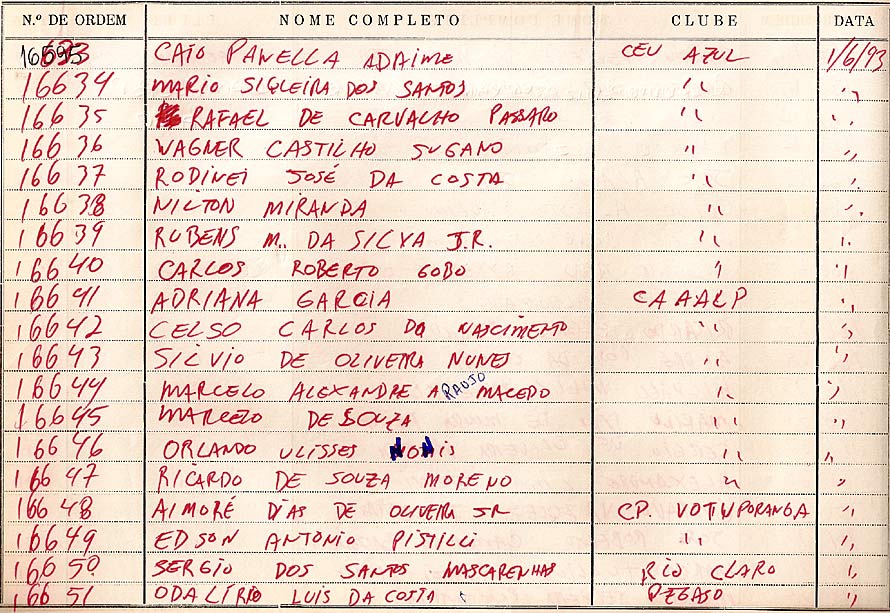 N.º DE ORDEM NOME COMPLETO CLUBE DATA
CAIO PANELLA ADAIME CEU AZUL 1/6/93
16634 MARIO SIQUEIRA DOS SANTOS " "
16635 RAFAEL DE CARVALHO PASSARO " "
16636 WAGNER CASTILHO SUGANO " "
16637 RODINEI JOSÉ DA COSTA " "
16638 NILTON MIRANDA " "
16639 RUBENS M. DA SILVA J.R. " "
16640 CARLOS ROBERTO GOBO " "
16641 ADRIANA GARCIA CAAALP "
16642 CELSO CARLOS DO NASCIMENTO " "
16643 SILVIO DE OLIVEIRA NUNES " "
16644 MARCELO ALEXANDRE ARAUJO MACEDO " "
16645 MARCELO DE SOUZA " "
16646 ORLANDO ULISSES " "
16647 RICARDO DE SOUZA MORENO " "
16648 AIMORÉ DIAS DE OLIVEIRA JR CP. VOTUPORANGA "
16649 EDSON ANTONIO PISTILLI " "
16650 SERGIO DOS SANTOS MASCARENHAS RIO CLARO "
16651 ODALIRIO LUIS DA COSTA PEGASO "